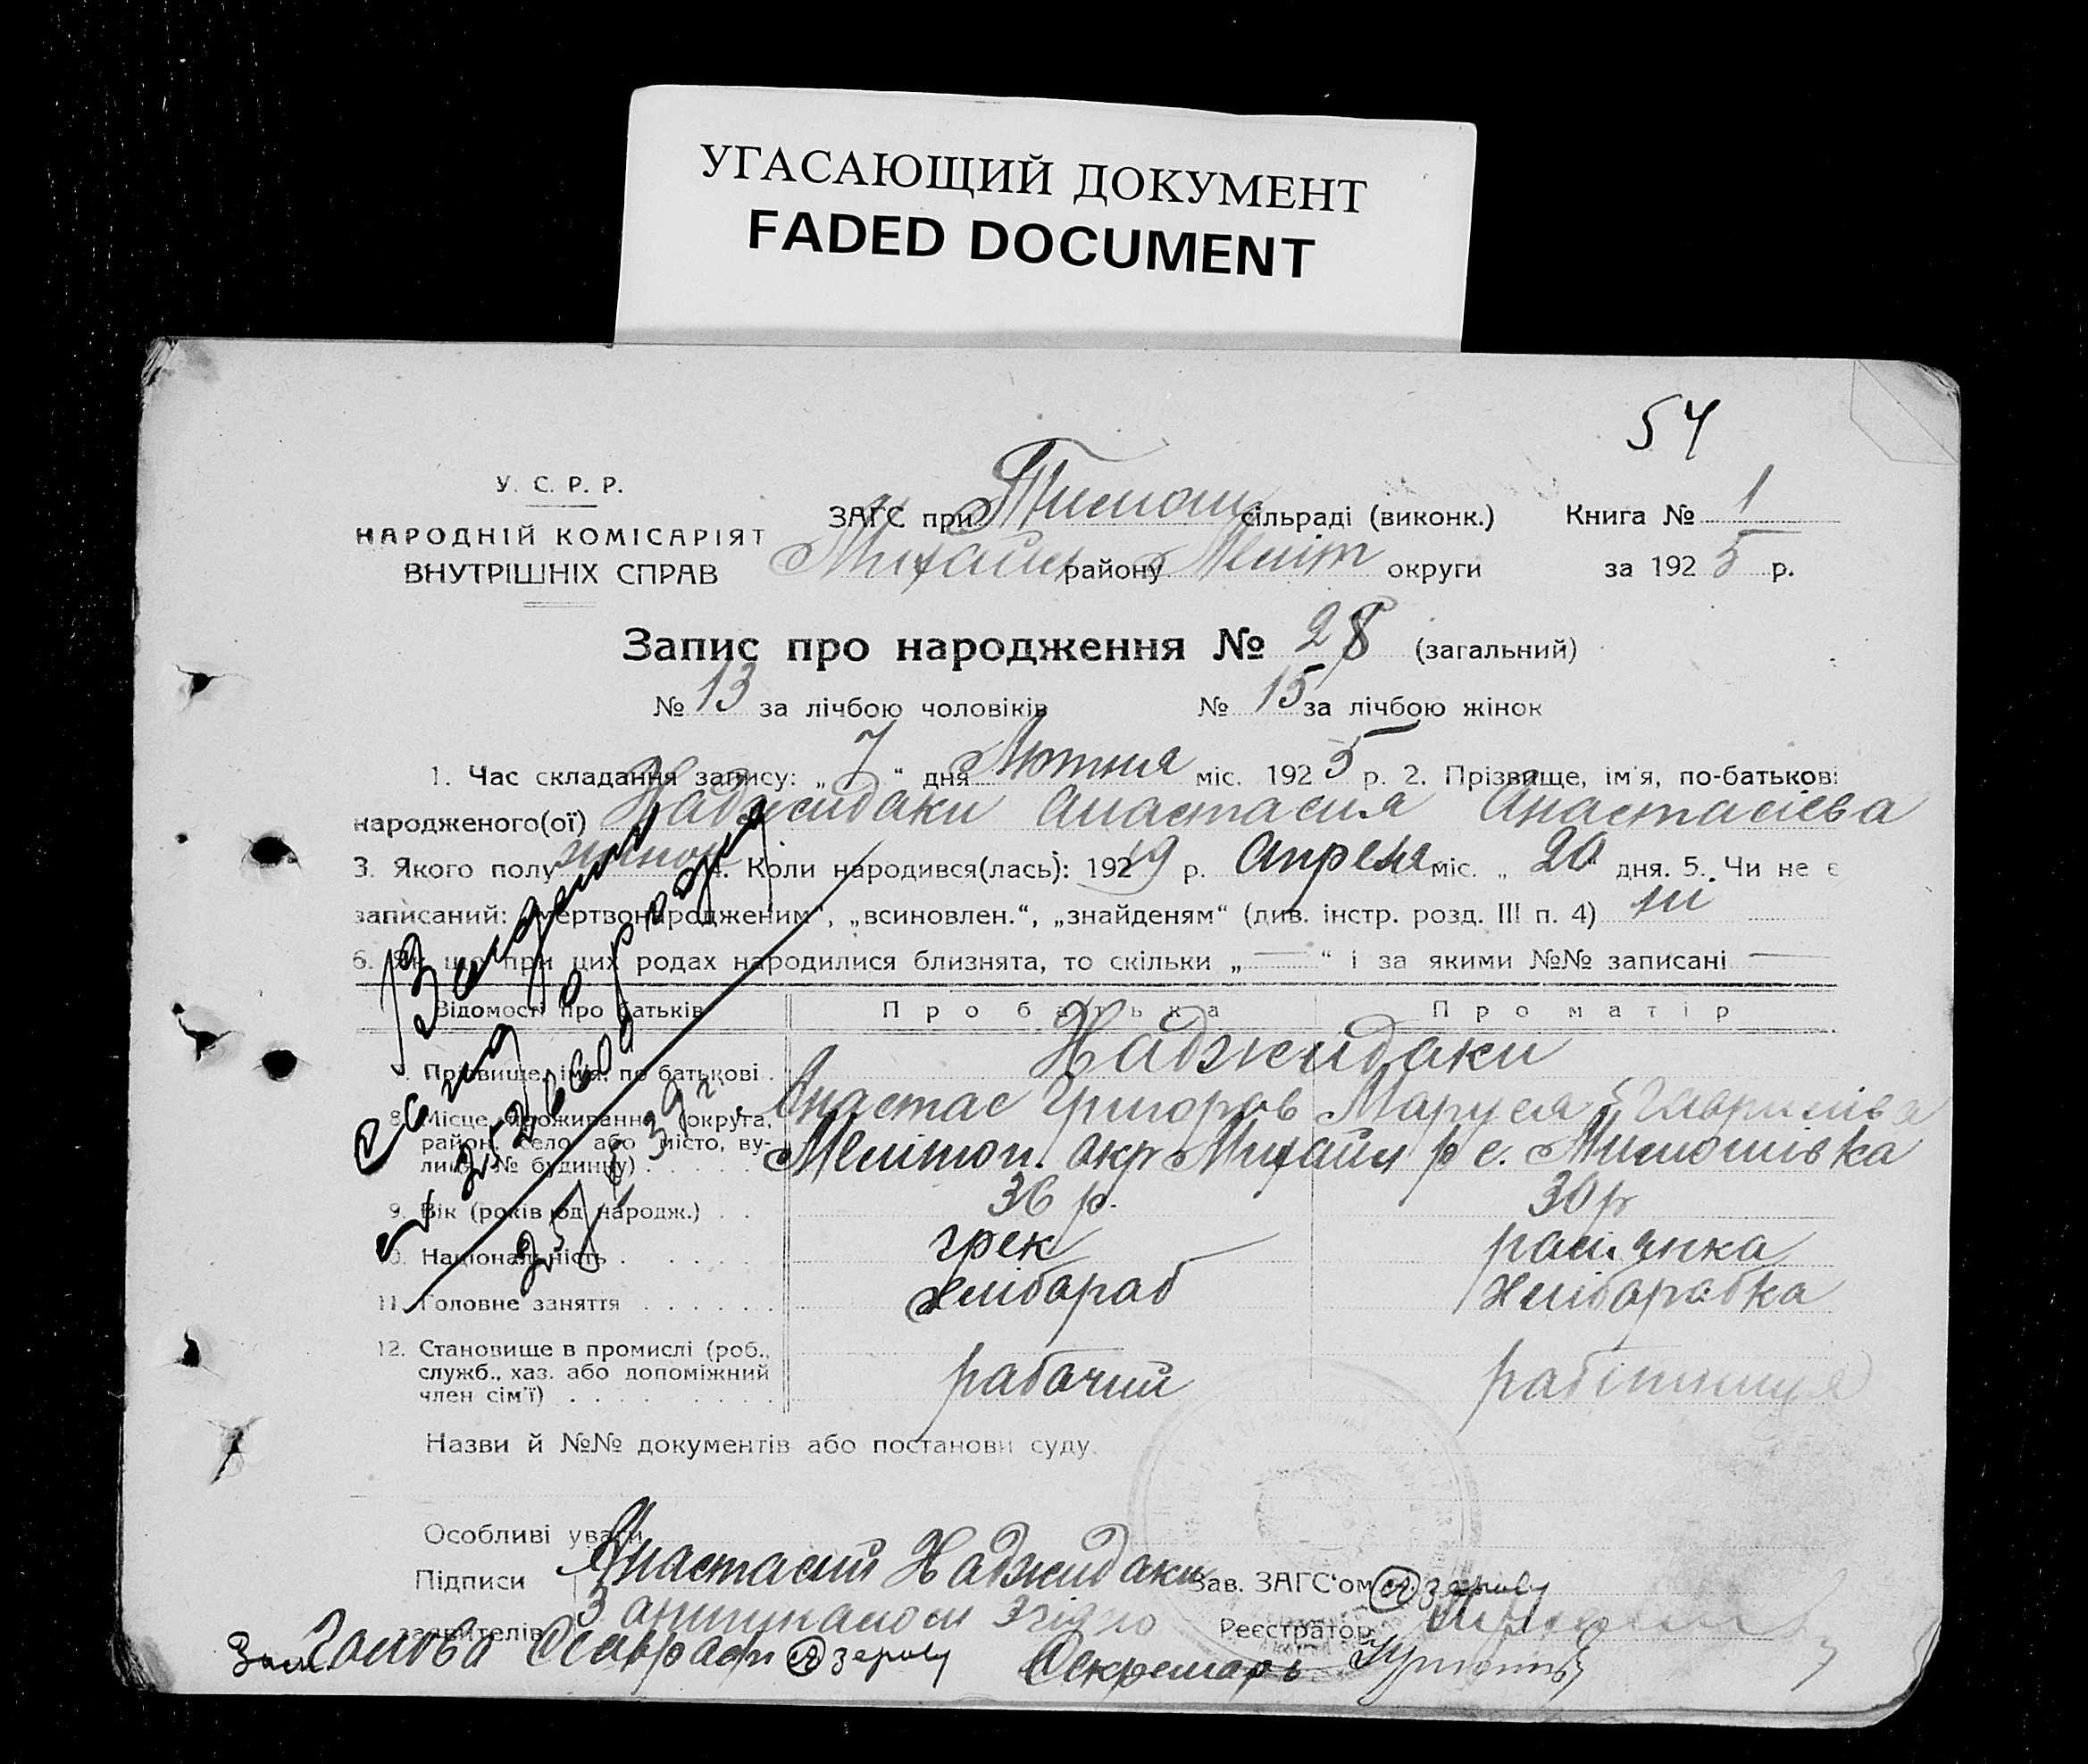 УГАСАЮЩИЙ ДОКУМЕНТ
FADED DOCUMENT
54
У. С. Р. Р.
НАРОДНІЙ КОМІСАРІЯТ
ВНУТРІШНІХ СПРАВ
ЗАГС при Тимош сільраді (виконк.)
Михайл району Меліт округи
Книга № 1
за 1925 р.
Запис про народження № 28 (загальний)
№ 13 за лічбою чоловіків № 15 за лічбою жінок
1. Час складання запису: „ 7 “ дня Лютня міс. 1925 р. 2. Прізвище, ім'я, по-батькові
народженого(ої) Хаджидаки Анастасия Анастасієва
3. Якого полу жіноч 4. Коли народився(лась): 19219 р. Апреля міс. „ 20 дня. 5. Чи не є
записаний: „мертвонародженим“, „всиновлен.“, „знайденям“ (див. інстр. розд. III п. 4) ні
6. Як що при цих родах народилися близнята, то скільки „ — “ і за якими №№ записані —
Відомості про батьків Про батька Про матір
Хаджидаки
Прізвище, імія, по батькові Анастас Григоров Маруся Гаврилівa
8. Місце проживання (округа,
район, село або місто, ву-
лиця, № будинку) Мелітоп. окр Михайл р с. Тимошівка
9. Вік (років од народж.) 36 р. 30 р
10. Національність грек
11. Головне заняття хлібороб хліборобка
12. Становище в промислі (роб.,
служб., хаз. або допоміжний
член сім'ї) рабочий робітниця
Назви й №№ документів або постанови суду
Особливі уваги
Підписи Анастасий Хаджидаки Зав. ЗАГС'ом
заявителів З орипналом згідно Реєстратор
Зам Голова Секретарь